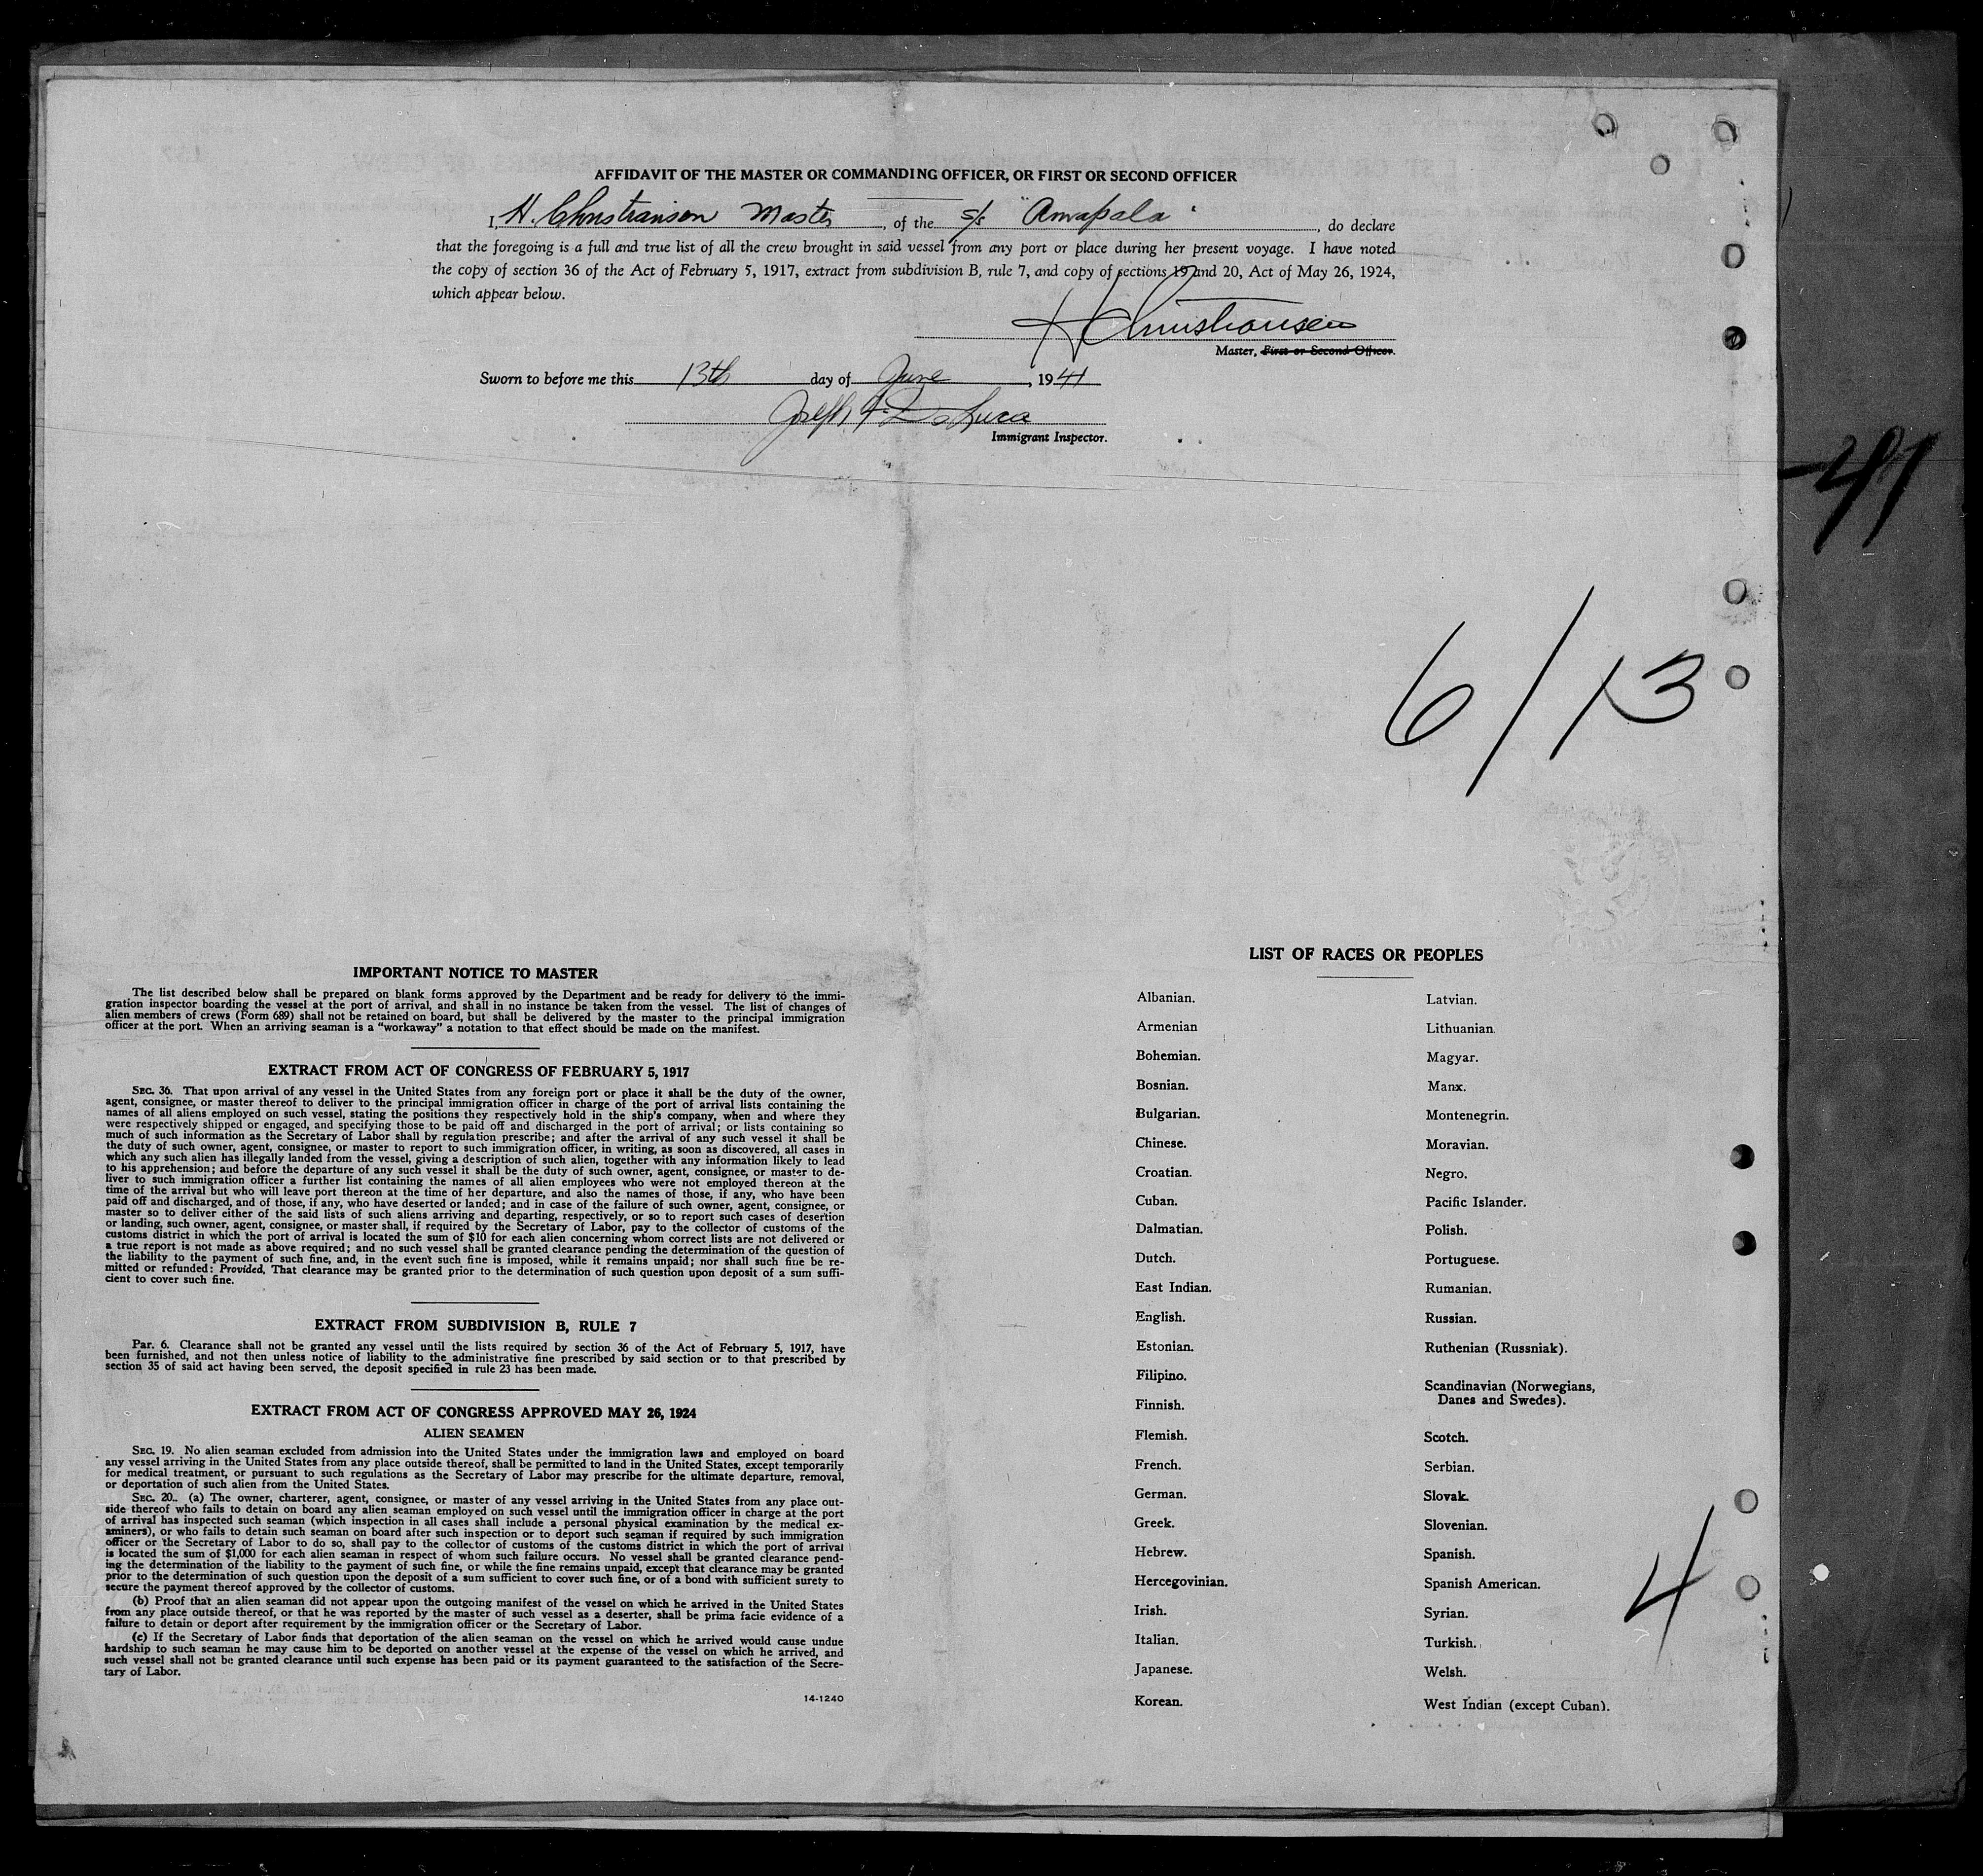 AFFIDAVIT OF THE MASTER OR COMMANDING OFFICER, OR FIRST OR SECOND OFFICER
I, H. Christiansen Master, of the s/s "Amapala", do declare
that the foregoing is a full and true list of all the crew brought in said vessel from any port or place during her present voyage. I have noted
the copy of section 36 of the Act of February 5, 1917, extract from subdivision B, rule 7, and copy of sections 19 and 20, Act of May 26, 1924,
which appear below.
H Christiansen
Master, First or Second Officer.
Sworn to before me this 13th day of June, 1941
Joseph
Immigrant Inspector.
-41
6/13
IMPORTANT NOTICE TO MASTER
The list described below shall be prepared on blank forms approved by the Department and be ready for delivery to the immi-
gration inspector boarding the vessel at the port of arrival, and shall in no instance be taken from the vessel. The list of changes of
alien members of crews (Form 689) shall not be retained on board, but shall be delivered by the master to the principal immigration
officer at the port. When an arriving seaman is a "workaway" a notation to that effect should be made on the manifest.
EXTRACT FROM ACT OF CONGRESS OF FEBRUARY 5, 1917
SEC. 36. That upon arrival of any vessel in the United States from any foreign port or place it shall be the duty of the owner,
agent, consignee, or master thereof to deliver to the principal immigration officer in charge of the port of arrival lists containing the
names of all aliens employed on such vessel, stating the positions they respectively hold in the ship's company, when and where they
were respectively shipped or engaged, and specifying those to be paid off and discharged in the port of arrival; or lists containing so
much of such information as the Secretary of Labor shall by regulation prescribe; and after the arrival of any such vessel it shall be
the duty of such owner, agent, consignee, or master to report to such immigration officer, in writing, as soon as discovered, all cases in
which any such alien has illegally landed from the vessel, giving a description of such alien, together with any information likely to lead
to his apprehension; and before the departure of any such vessel it shall be the duty of such owner, agent, consignee, or master to de-
liver to such immigration officer a further list containing the names of all alien employees who were not employed thereon at the
time of the arrival but who will leave port thereon at the time of her departure, and also the names of those, if any, who have been
paid off and discharged, and of those, if any, who have deserted or landed; and in case of the failure of such owner, agent, consignee, or
master so to deliver either of the said lists of such aliens arriving and departing, respectively, or so to report such cases of desertion
or landing, such owner, agent, consignee, or master shall, if required by the Secretary of Labor, pay to the collector of customs of the
customs district in which the port of arrival is located the sum of $10 for each alien concerning whom correct lists are not delivered or
a true report is not made as above required; and no such vessel shall be granted clearance pending the determination of the question of
the liability to the payment of such fine, and, in the event such fine is imposed, while it remains unpaid; nor shall such fine be re-
mitted or refunded: Provided, That clearance may be granted prior to the determination of such question upon deposit of a sum suffi-
cient to cover such fine.
EXTRACT FROM SUBDIVISION B, RULE 7
Par. 6. Clearance shall not be granted any vessel until the lists required by section 36 of the Act of February 5, 1917, have
been furnished, and not then unless notice of liability to the administrative fine prescribed by said section or to that prescribed by
section 35 of said act having been served, the deposit specified in rule 23 has been made.
EXTRACT FROM ACT OF CONGRESS APPROVED MAY 26, 1924
ALIEN SEAMEN
SEC. 19. No alien seaman excluded from admission into the United States under the immigration laws and employed on board
any vessel arriving in the United States from any place outside thereof, shall be permitted to land in the United States, except temporarily
for medical treatment, or pursuant to such regulations as the Secretary of Labor may prescribe for the ultimate departure, removal,
or deportation of such alien from the United States.
SEC. 20. (a) The owner, charterer, agent, consignee, or master of any vessel arriving in the United States from any place out-
side thereof who fails to detain on board any alien seaman employed on such vessel until the immigration officer in charge at the port
of arrival has inspected such seaman (which inspection in all cases shall include a personal physical examination by the medical ex-
aminers), or who fails to detain such seaman on board after such inspection or to deport such seaman if required by such immigration
officer or the Secretary of Labor to do so, shall pay to the collector of customs of the customs district in which the port of arrival
is located the sum of $1,000 for each alien seaman in respect of whom such failure occurs. No vessel shall be granted clearance pend-
ing the determination of the liability to the payment of such fine, or while the fine remains unpaid, except that clearance may be granted
prior to the determination of such question upon the deposit of a sum sufficient to cover such fine, or of a bond with sufficient surety to
secure the payment thereof approved by the collector of customs.
(b) Proof that an alien seaman did not appear upon the outgoing manifest of the vessel on which he arrived in the United States
from any place outside thereof, or that he was reported by the master of such vessel as a deserter, shall be prima facie evidence of a
failure to detain or deport after requirement by the immigration officer or the Secretary of Labor.
(c) If the Secretary of Labor finds that deportation of the alien seaman on the vessel on which he arrived would cause undue
hardship to such seaman he may cause him to be deported on another vessel at the expense of the vessel on which he arrived, and
such vessel shall not be granted clearance until such expense has been paid or its payment guaranteed to the satisfaction of the Secre-
tary of Labor.
14-1240
LIST OF RACES OR PEOPLES
Albanian.
Armenian
Bohemian.
Bosnian.
Bulgarian.
Chinese.
Croatian.
Cuban.
Dalmatian.
Dutch.
East Indian.
English.
Estonian.
Filipino.
Finnish.
Flemish.
French.
German.
Greek.
Hebrew.
Hercegovinian.
Irish.
Italian.
Japanese.
Korean.
Latvian.
Lithuanian
Magyar.
Manx.
Montenegrin.
Moravian.
Negro.
Pacific Islander.
Polish.
Portuguese.
Rumanian.
Russian.
Ruthenian (Russniak).
Scandinavian (Norwegians,
Danes and Swedes).
Scotch.
Serbian.
Slovak.
Slovenian.
Spanish.
Spanish American.
Syrian.
Turkish.
Welsh.
West Indian (except Cuban).
4